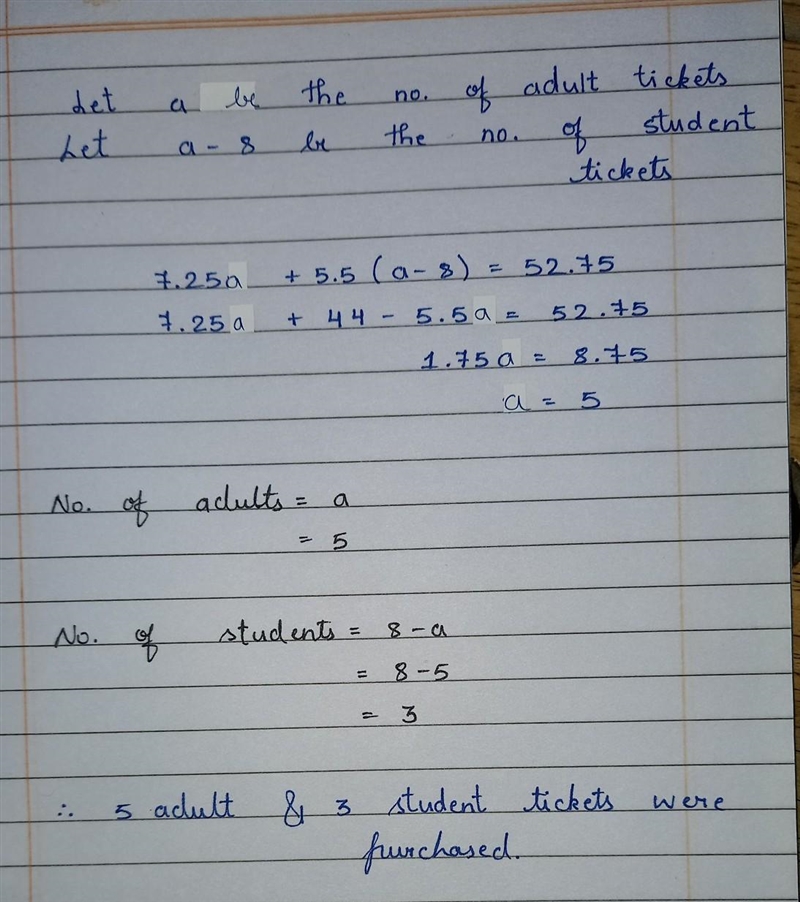 Let a be the no. of adult tickets
Let a - 8 be the no. of student
tickets
7.25a + 5.5 (a - 8) = 52.75
7.25a + 44 - 5.5a = 52.75
1.75a = 8.75
a = 5
No. of adults = a
= 5
No. of students = 8 - a
= 8 - 5
= 3
∴ 5 adult & 3 student tickets were
purchased.